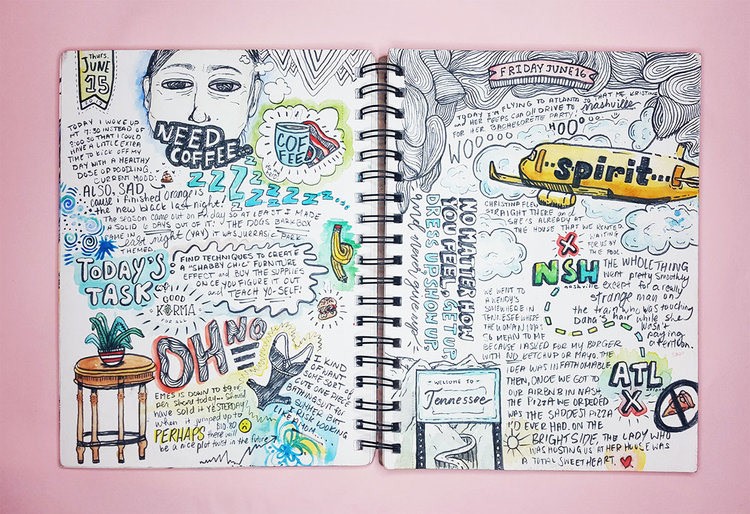 Thurs.
JUNE
15
NEED
COFFEE
COF
FEE
TODAY I WOKE UP
AT 7:30 INSTEAD OF
8:00 SO THAT I COULD
HAVE A LITTLE EXTRA
TIME TO KICK OFF MY
DAY WITH A HEALTHY
DOSE OF DOODLING.
CURRENT MOOD:
ALSO, SAD
cause i finished orange is
the new black last night!
The season came out on Friday so at least I made
a solid 6 days out of it! THE DOGS BARKBOX
CAME IN last night (YAY) IT WAS JURRASIC PARK
THEMED
zzzzzzzzzz
TODAY'S
TASK
FIND TECHNIQUES TO CREATE
A "SHABBY CHIC" FURNITURE
EFFECT AND BUY THE SUPPLIES
ONCE YOU FIGURE IT OUT
and TEACH YO-SELF.
GOOD
KARMA
OH NO
EMES IS DOWN TO
per share today... should
have sold it YESTERDAY
when it jumped up to
PERHAPS there will
be a nice plot twist in the future?
I KIND
OF WANT
TO SORT OF
CUTE ONE PIECE
BATHING SUIT
LOOKING
FRIDAY JUNE 16
TODAY I'M FLYING TO ATLANTA SO THAT ME, KRISTINE,
& HER PEEPS CAN ALL DRIVE TO nashville
FOR HER BACHELORETTE PARTY.
WOOOOO
HOOO
spirit
CHRISTINA FLEW
STRAIGHT THERE and
SHE'S ALREADY AT
THE HOUSE THAT WE RENTED
WAITING
FOR US BY
THE POOL
NO MATTER HOW
YOU FEEL, GET UP,
DRESS UP, SHOW UP,
and never give up!
X
NSH
nashville
THE WHOLE THING
went pretty smoothly
except for a really
strange man on
the train who was touching
dana's hair while she
wasn't
paying
attention.
WE WENT TO
A WENDY'S
SOMEWHERE IN
TENNESSEE WHERE
THE WOMAN WAS
SO MEAN TO ME
BECAUSE I ASKED FOR MY BURGER
WITH NO KETCHUP OR MAYO. THE
IDEA WAS UNFATHOMABLE.
THEN, ONCE WE GOT TO
OUR AIRBNB IN NASH,
THE PIZZA WE ORDERED
WAS THE SADDEST PIZZA
I'D EVER HAD. ON THE
BRIGHT SIDE, THE LADY WHO
WAS HOSTING US AT HER HOUSE WAS
A TOTAL SWEETHEART.
ATL
X
WELCOME TO
Tennessee